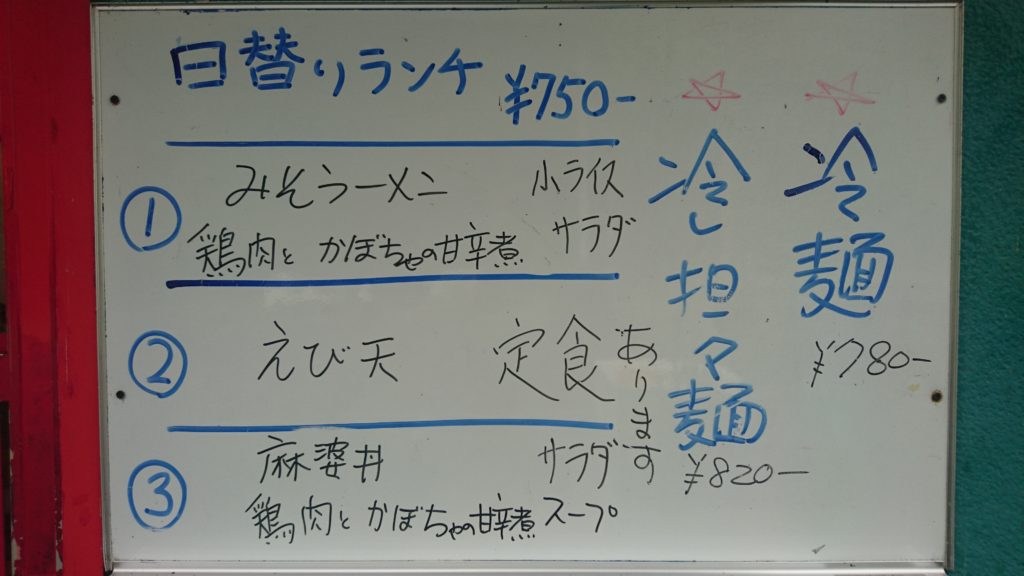 日替りランチ ¥750-
① みそラーメン 小ライス
鶏肉と かぼちゃの甘辛煮 サラダ
② えび天 定食
③ 麻婆丼 サラダ
鶏肉と かぼちゃの甘辛煮 スープ
☆冷麺
¥780-
☆冷し担々麺
¥820-
あります